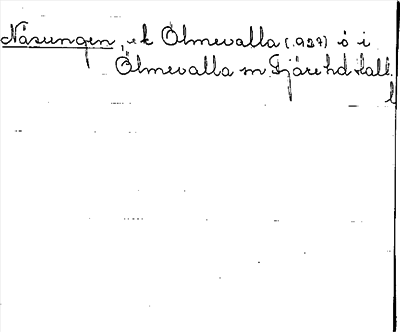 Näsungen, ek Ölmevalla (1937) ö i
Ölmevalla sn Fjäre hd Hall.
l